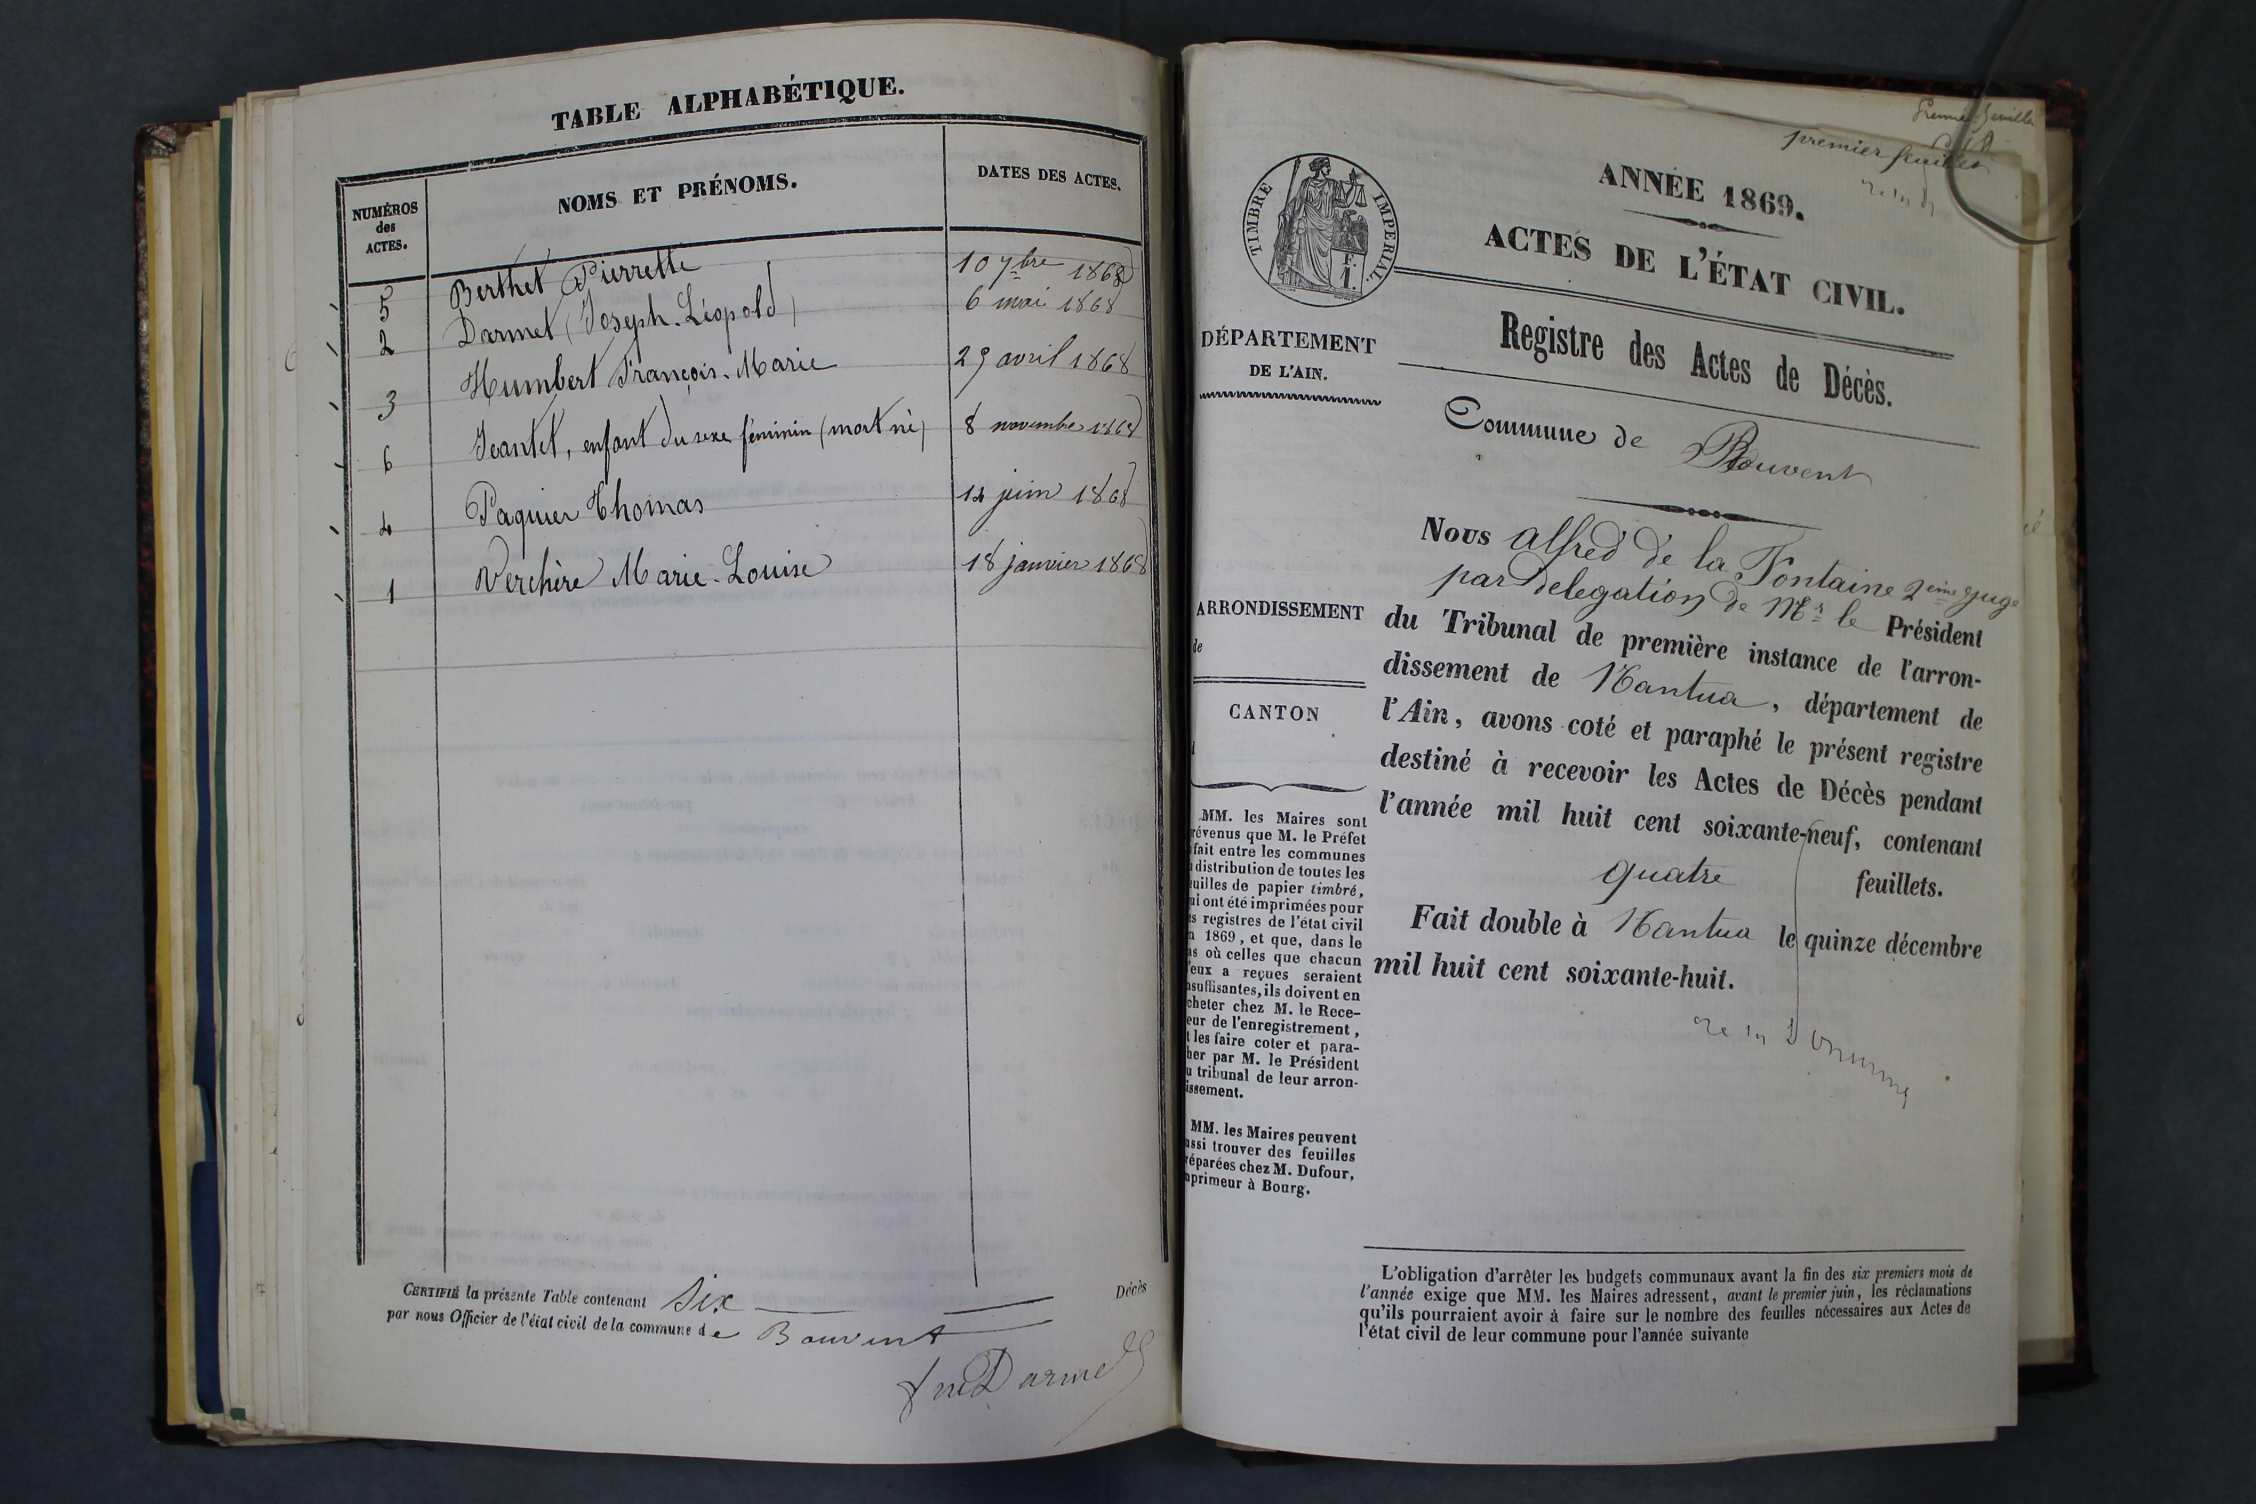 TABLE ALPHABÉTIQUE.
NUMÉROS
des
ACTES.
NOMS ET PRÉNOMS.
DATES DES ACTES.
5 Berthet Pierrette 10 7bre 1868
2 Darmet (Joseph-Léopold) 6 mai 1868
3 Humbert François-Marie 29 avril 1868
6 Jeantet, enfant du sexe féminin (mort né) 8 novembre 1868
4 Paquier Thomas 12 juin 1868
1 Verchère Marie-Louise 18 janvier 1868
CERTIFIÉ la présente Table contenant six Décès
par nous Officier de l'état civil de la commune de Bouvent
Darmet
premier feuillet
TIMBRE IMPÉRIAL.
ANNÉE 1869.
ACTES DE L'ÉTAT CIVIL.
DÉPARTEMENT
DE L'AIN.
ARRONDISSEMENT
de
CANTON
d
MM. les Maires sont
révenus que M. le Préfet
fait entre les communes
distribution de toutes les
uilles de papier timbré,
ui ont été imprimées pour
es registres de l'état civil
n 1869, et que, dans le
as où celles que chacun
'eux a reçues seraient
nsuffisantes, ils doivent en
cheter chez M. le Rece-
eur de l'enregistrement,
t les faire coter et para-
her par M. le Président
u tribunal de leur arron-
issement.
MM. les Maires peuvent
ussi trouver des feuilles
réparées chez M. Dufour,
mprimeur à Bourg.
Registre des Actes de Décès.
Commune de Bouvent
Nous alfred de la Fontaine 2eme juge
par delegation de Mr le Président
du Tribunal de première instance de l'arron-
dissement de Nantua, département de
l'Ain, avons coté et paraphé le présent registre
destiné à recevoir les Actes de Décès pendant
l'année mil huit cent soixante-neuf, contenant
quatre feuillets.
Fait double à Nantua le quinze décembre
mil huit cent soixante-huit.
L'obligation d'arrêter les budgets communaux avant la fin des six premiers mois de
l'année exige que MM. les Maires adressent, avant le premier juin, les réclamations
qu'ils pourraient avoir à faire sur le nombre des feuilles nécessaires aux Actes de
l'état civil de leur commune pour l'année suivante